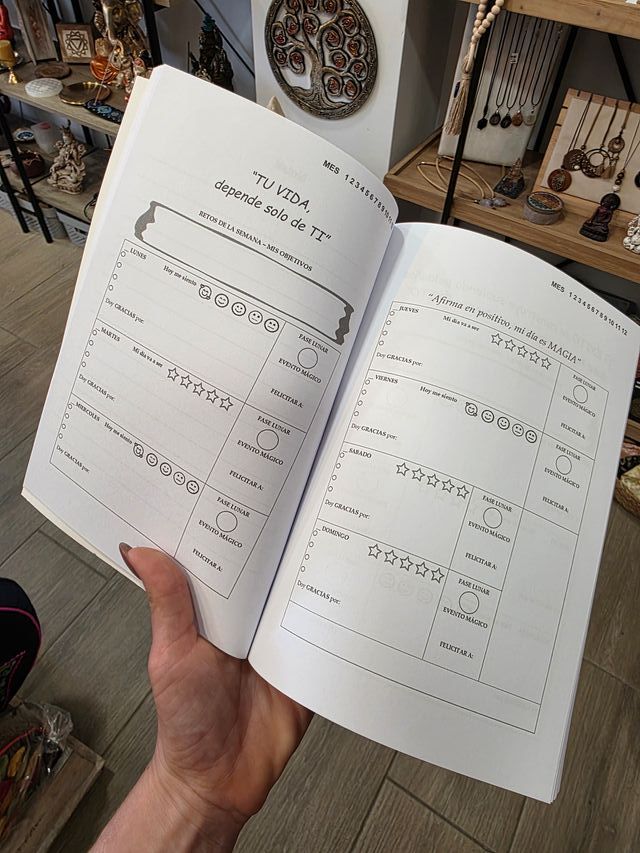 MES 1 2 3 4 5 6 7 8 9 10
"TU VIDA,
depende solo de TI"
RETOS DE LA SEMANA - MIS OBJETIVOS
LUNES
Hoy me siento
Doy GRACIAS por:
FASE LUNAR
EVENTO MÁGICO
FELICITAR A:
MARTES
Mi día va a ser
Doy GRACIAS por:
FASE LUNAR
EVENTO MÁGICO
FELICITAR A:
MIERCOLES
Hoy me siento
Doy GRACIAS por:
FASE LUNAR
EVENTO MÁGICO
FELICITAR A:
MES 1 2 3 4 5 6 7 8 9 10 11 12
"Afirma en positivo, mi día es MAGIA"
JUEVES
Mi día va a ser
Doy GRACIAS por:
FASE LUNAR
EVENTO MÁGICO
FELICITAR A:
VIERNES
Hoy me siento
Doy GRACIAS por:
FASE LUNAR
EVENTO MÁGICO
FELICITAR A:
SABADO
Doy GRACIAS por:
FASE LUNAR
EVENTO MÁGICO
FELICITAR A:
DOMINGO
Doy GRACIAS por:
FASE LUNAR
EVENTO MÁGICO
FELICITAR A: